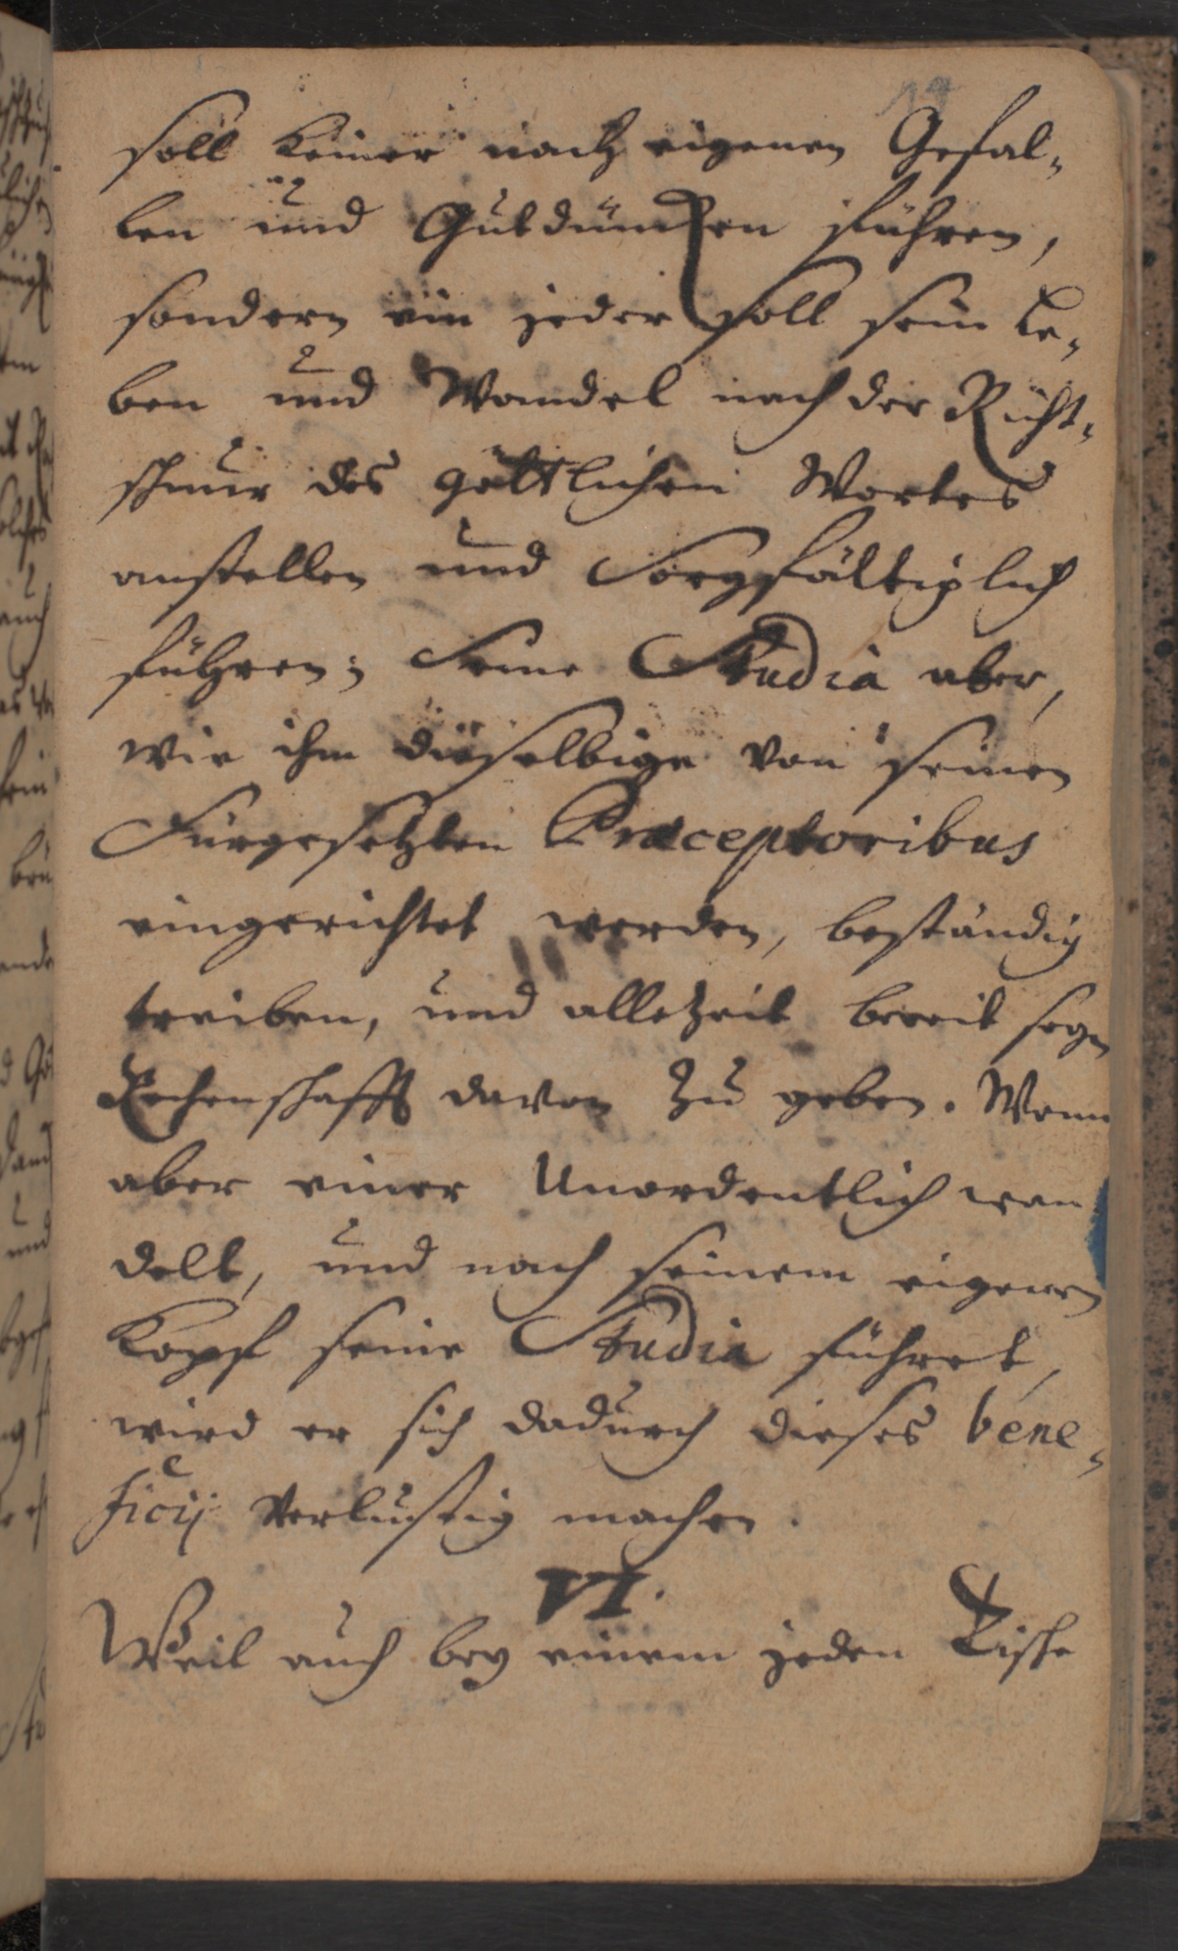 soll keiner nach eigenen Gefal-
len und Gutdüncken führen,
sondern ein jeder soll sein Le-
ben und Wandel nach der Richt-
schnur des göttlichen Wortes
anstellen und Sorgfältiglich
führen; Seine Studia aber,
wie ihm dieselbige von seinen
Fürgesetzten Præceptoribus
eingerichtet werden, beständig
treiben, und allezeit bereit seyn
Rechenschafft davon zu geben. Wenn
aber einer Unordentlich wan
delt, und nach seinem eigenen
Kopf seine Studia führet,
wird er sich dadurch dieses bene-
ficij verlustig machen.
VI.
Weil auch bey einem jeden Tische